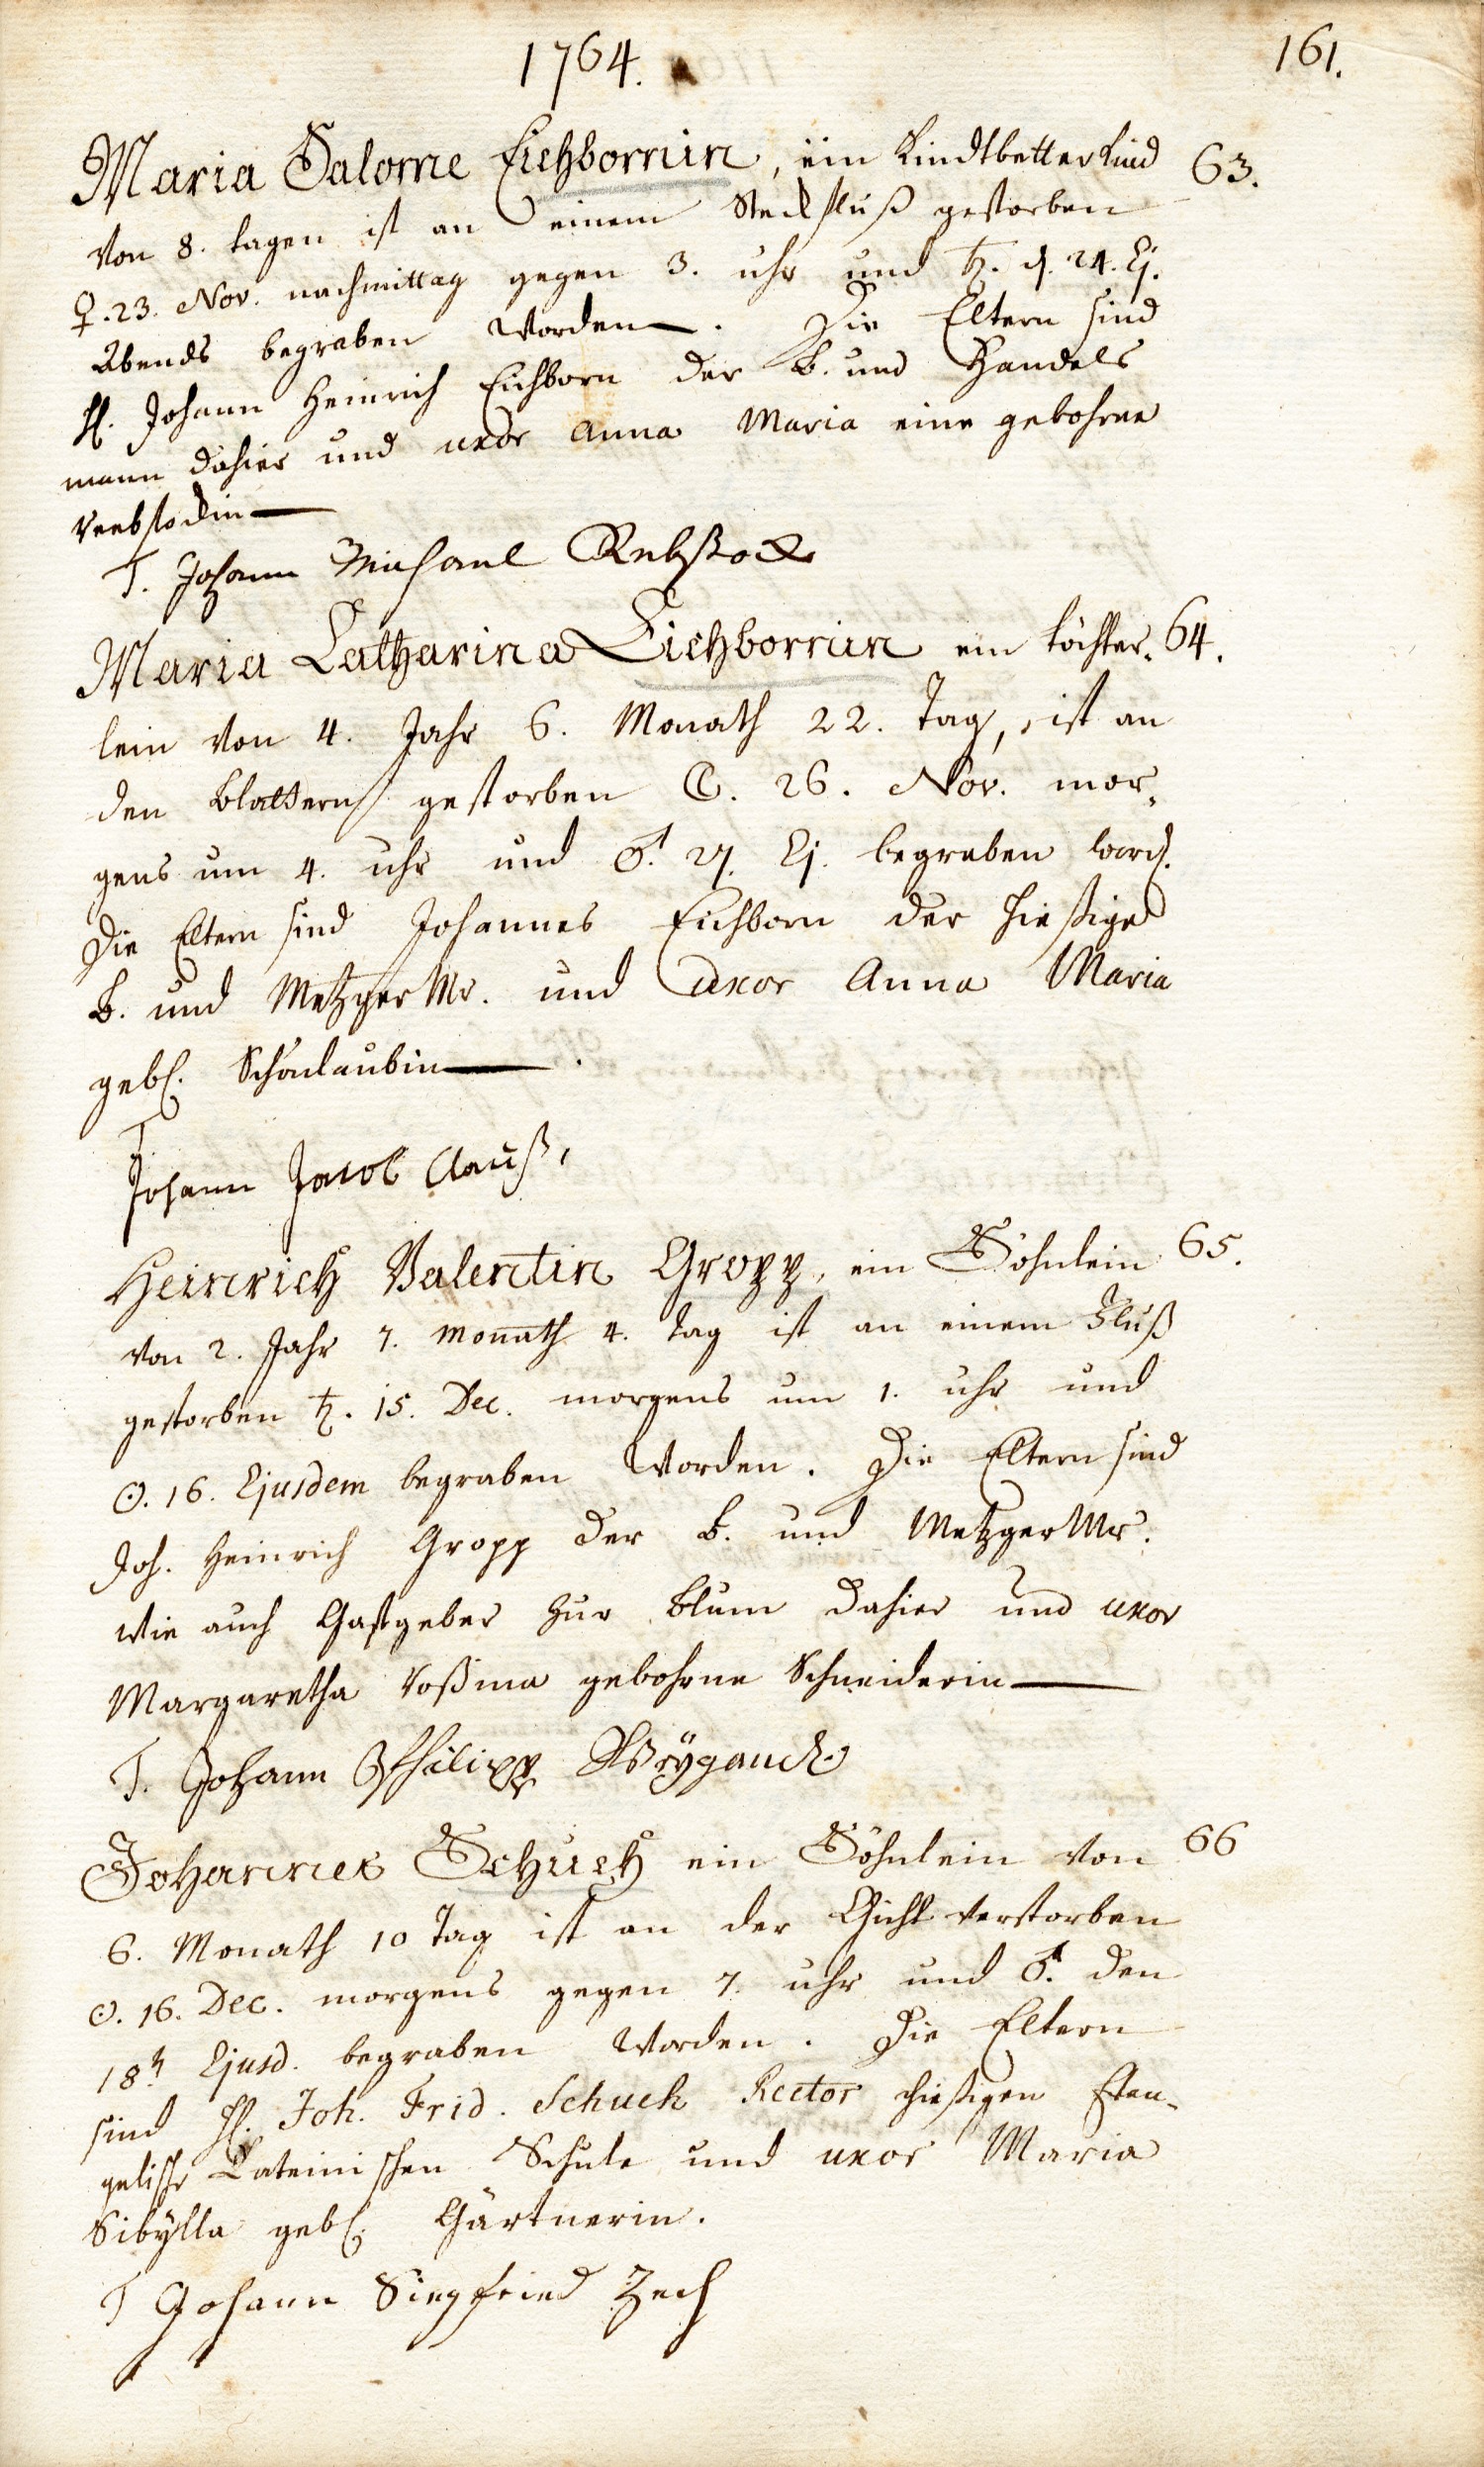 1764. 161.
Maria Salome Eichbornin, ein Kindtbetterkind 63.
von 8. tagen ist an einem Steckfluß gestorben
♀. 23. Nov. nachmittag gegen 3. uhr und ♄. d. 24. Ej.
Abends begraben worden. Die Eltern sind
H. Johann Heinrich Eichborn der B. und Handels
mann dahier und uxor Anna Maria eine gebohrne
Reebstockin
T. Johann Michael Rebstock
Maria Catharina Eichbornin ein töchter- 64.
lein von 4. Jahr 6. Monath 22. Tag, ist an
den blattern gestorben ☾. 26. Nov. mor-
gens um 4. uhr und ♂. 27. Ej. begraben word.
Die Eltern sind Johannes Eichborn der hießige
B. und Metzger Mr. und uxor Anna Maria
geb. Schönlaubin .
T
Johann Jacob Clauß,
Heinrich Valentin Gropp, ein Söhnlein 65.
von 2. Jahr 7. Monath 4. Tag ist an einem Fluß
gestorben ♄. 15. Dec. morgens um 1. uhr und
☉. 16. Ejusdem begraben worden. Die Eltern sind
Joh. Heinrich Gropp der B. und Metzger Mr.
wie auch Gastgeber zur Blum dahier und uxor
Margaretha Roßina gebohrne Schneiderin
T. Johann Philipp Weÿgandt
Johannes Schuch ein Söhnlein von 66
6. Monath 10 Tag ist an der Gicht verstorben
☉. 16. Dec. morgens gegen 7. uhr und ♂. den
18t Ejusd. begraben worden. Die Eltern
sind H. Joh. Frid. Schuch Rector hießigen Evan-
gelische Lateinischen Schule und uxor Maria
Sibÿlla geb. Gärtnerin.
T Johann Siegfried Zech